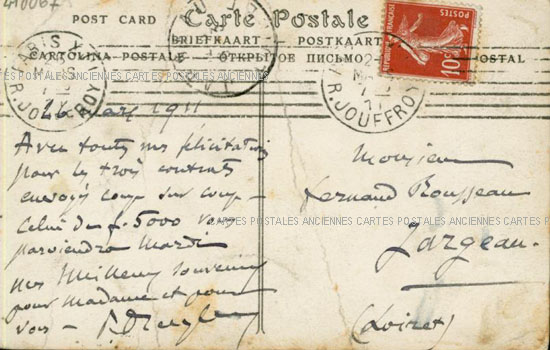 410067
POST CARD Carte Postale
BRIEFKAART POSTKAART
CARTOLINA POSTALE ОТКРЫТОЕ ПИСЬМО POSTAL
PARIS
R. JOUFFROY
R. JOUFFROY
POSTES
10c
CARTES POSTALES ANCIENNES CARTES POSTALES ANCIENNES CARTES POSTALES ANCIENNES CARTES POSTALES
26 Mars 1911
Avec toutes mes félicitations
pour les trois contrats
envoyés coup sur coup -
Celui de f. 5000 vous
parviendra Mardi
Nos Meilleurs Souvenirs
pour Madame et pour
vous -
Monsieur
Fernand Rousseau
Jargeau
(Loiret)
CARTES POSTALES ANCIENNES CARTES POSTALES ANCIENNES CARTES POSTALES ANCIENNES CARTES POSTALES